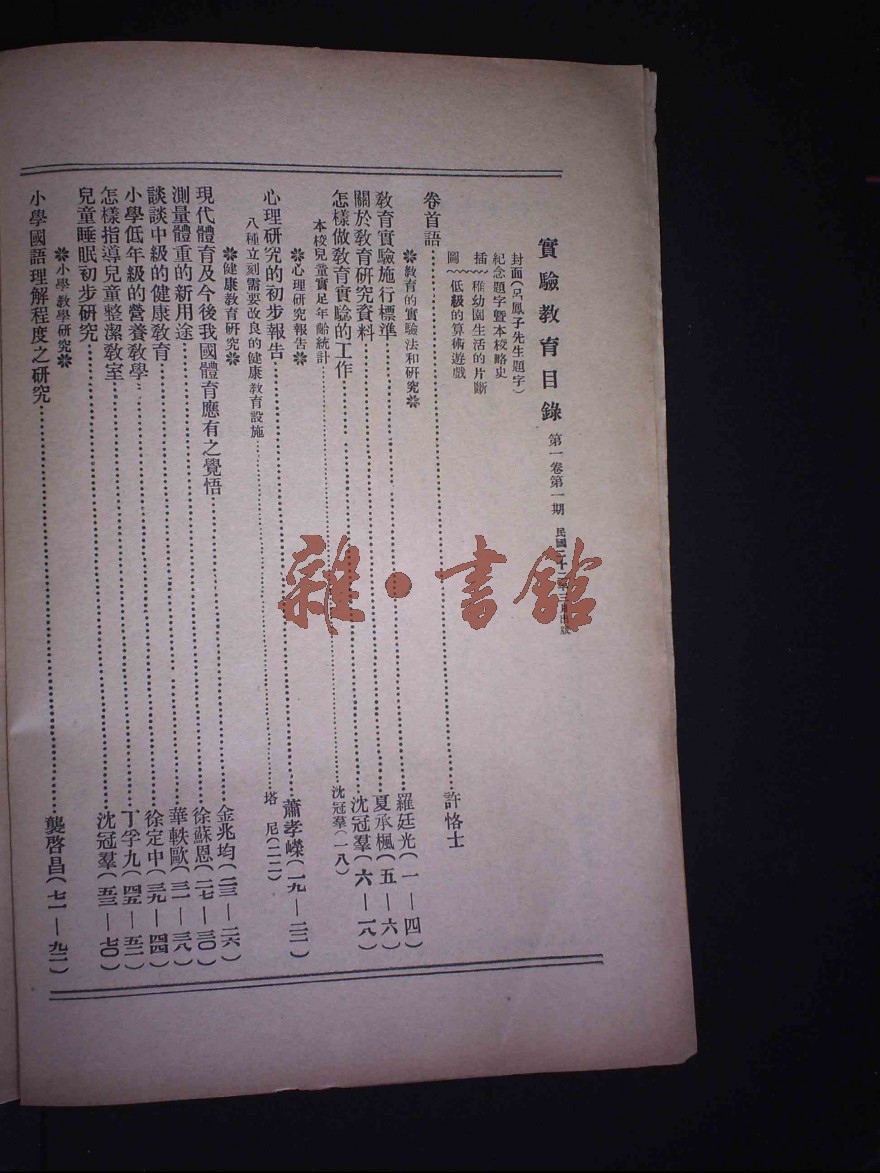 實驗教育目錄 第一卷第一期 民國二十二年三月出版
封面(呂鳳子先生題字)
紀念題字暨本校略史
插 稚幼園生活的片斷
圖 低級的算術遊戲
卷首語……許恪士
✽教育的實驗法和研究✽
教育實驗施行標準……羅廷光(一—四)
關於教育研究資料……夏承楓(五—六)
怎樣做教育實驗的工作……沈冠羣(六—一八)
本校兒童實足年齡統計……沈冠羣(一八)
✽心理研究報告✽
心理研究的初步報告……蕭孝嶸(一九—二二)
八種立刻需要改良的健康教育設施……塔 尼(二二)
✽健康教育研究✽
現代體育及今後我國體育應有之覺悟……金兆均(二三—二六)
測量體重的新用途……徐蘇恩(二七—三〇)
談談中級的健康教育……華軼歐(三一—三八)
小學低年級的營養教學……徐定中(三九—四四)
怎樣指導兒童整潔教室……丁孚九(四五—五二)
兒童睡眠初步研究……沈冠羣(五三—七〇)
✽小學教學研究✽
小學國語理解程度之研究……龔啓昌(七一—九二)
雜·書館